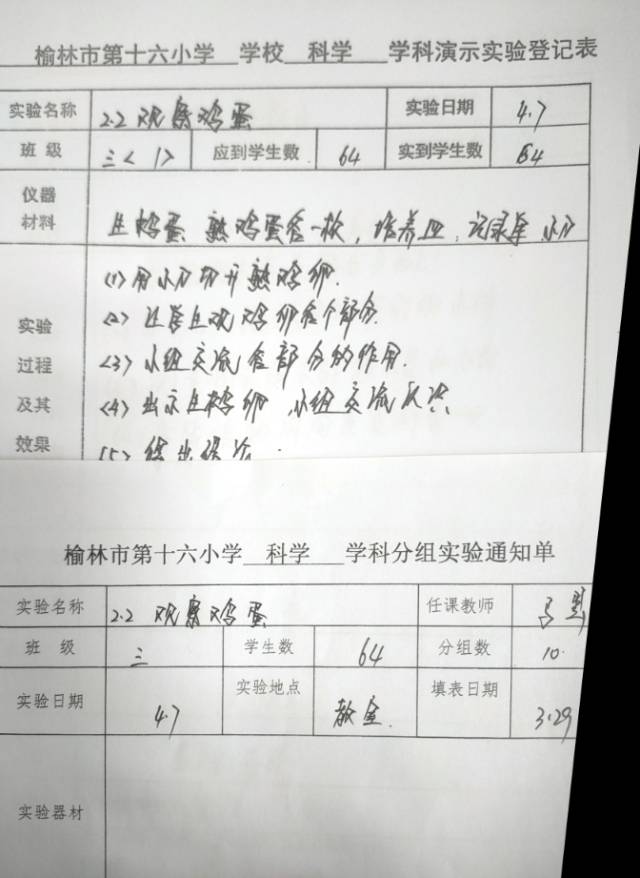 榆林市第十六小学 学校 科学 学科演示实验登记表
实验名称 2.2 观察鸡蛋 实验日期 4.7
班级 三<1> 应到学生数 64 实到学生数 64
仪器材料 生鸡蛋 熟鸡蛋各一枚，培养皿，记录单 小刀
实验过程及其效果
(1) 用小刀切开熟鸡卵.
(2) 让学生观鸡卵各个部分.
(3) 小组交流各部分的作用.
(4) 出示生鸡卵 小组交流
(5) 得出结论.
榆林市第十六小学 科学 学科分组实验通知单
实验名称 2.2 观察鸡蛋 任课教师
班级 三 学生数 64 分组数 10.
实验日期 4.7 实验地点 教室. 填表日期 3.29
实验器材